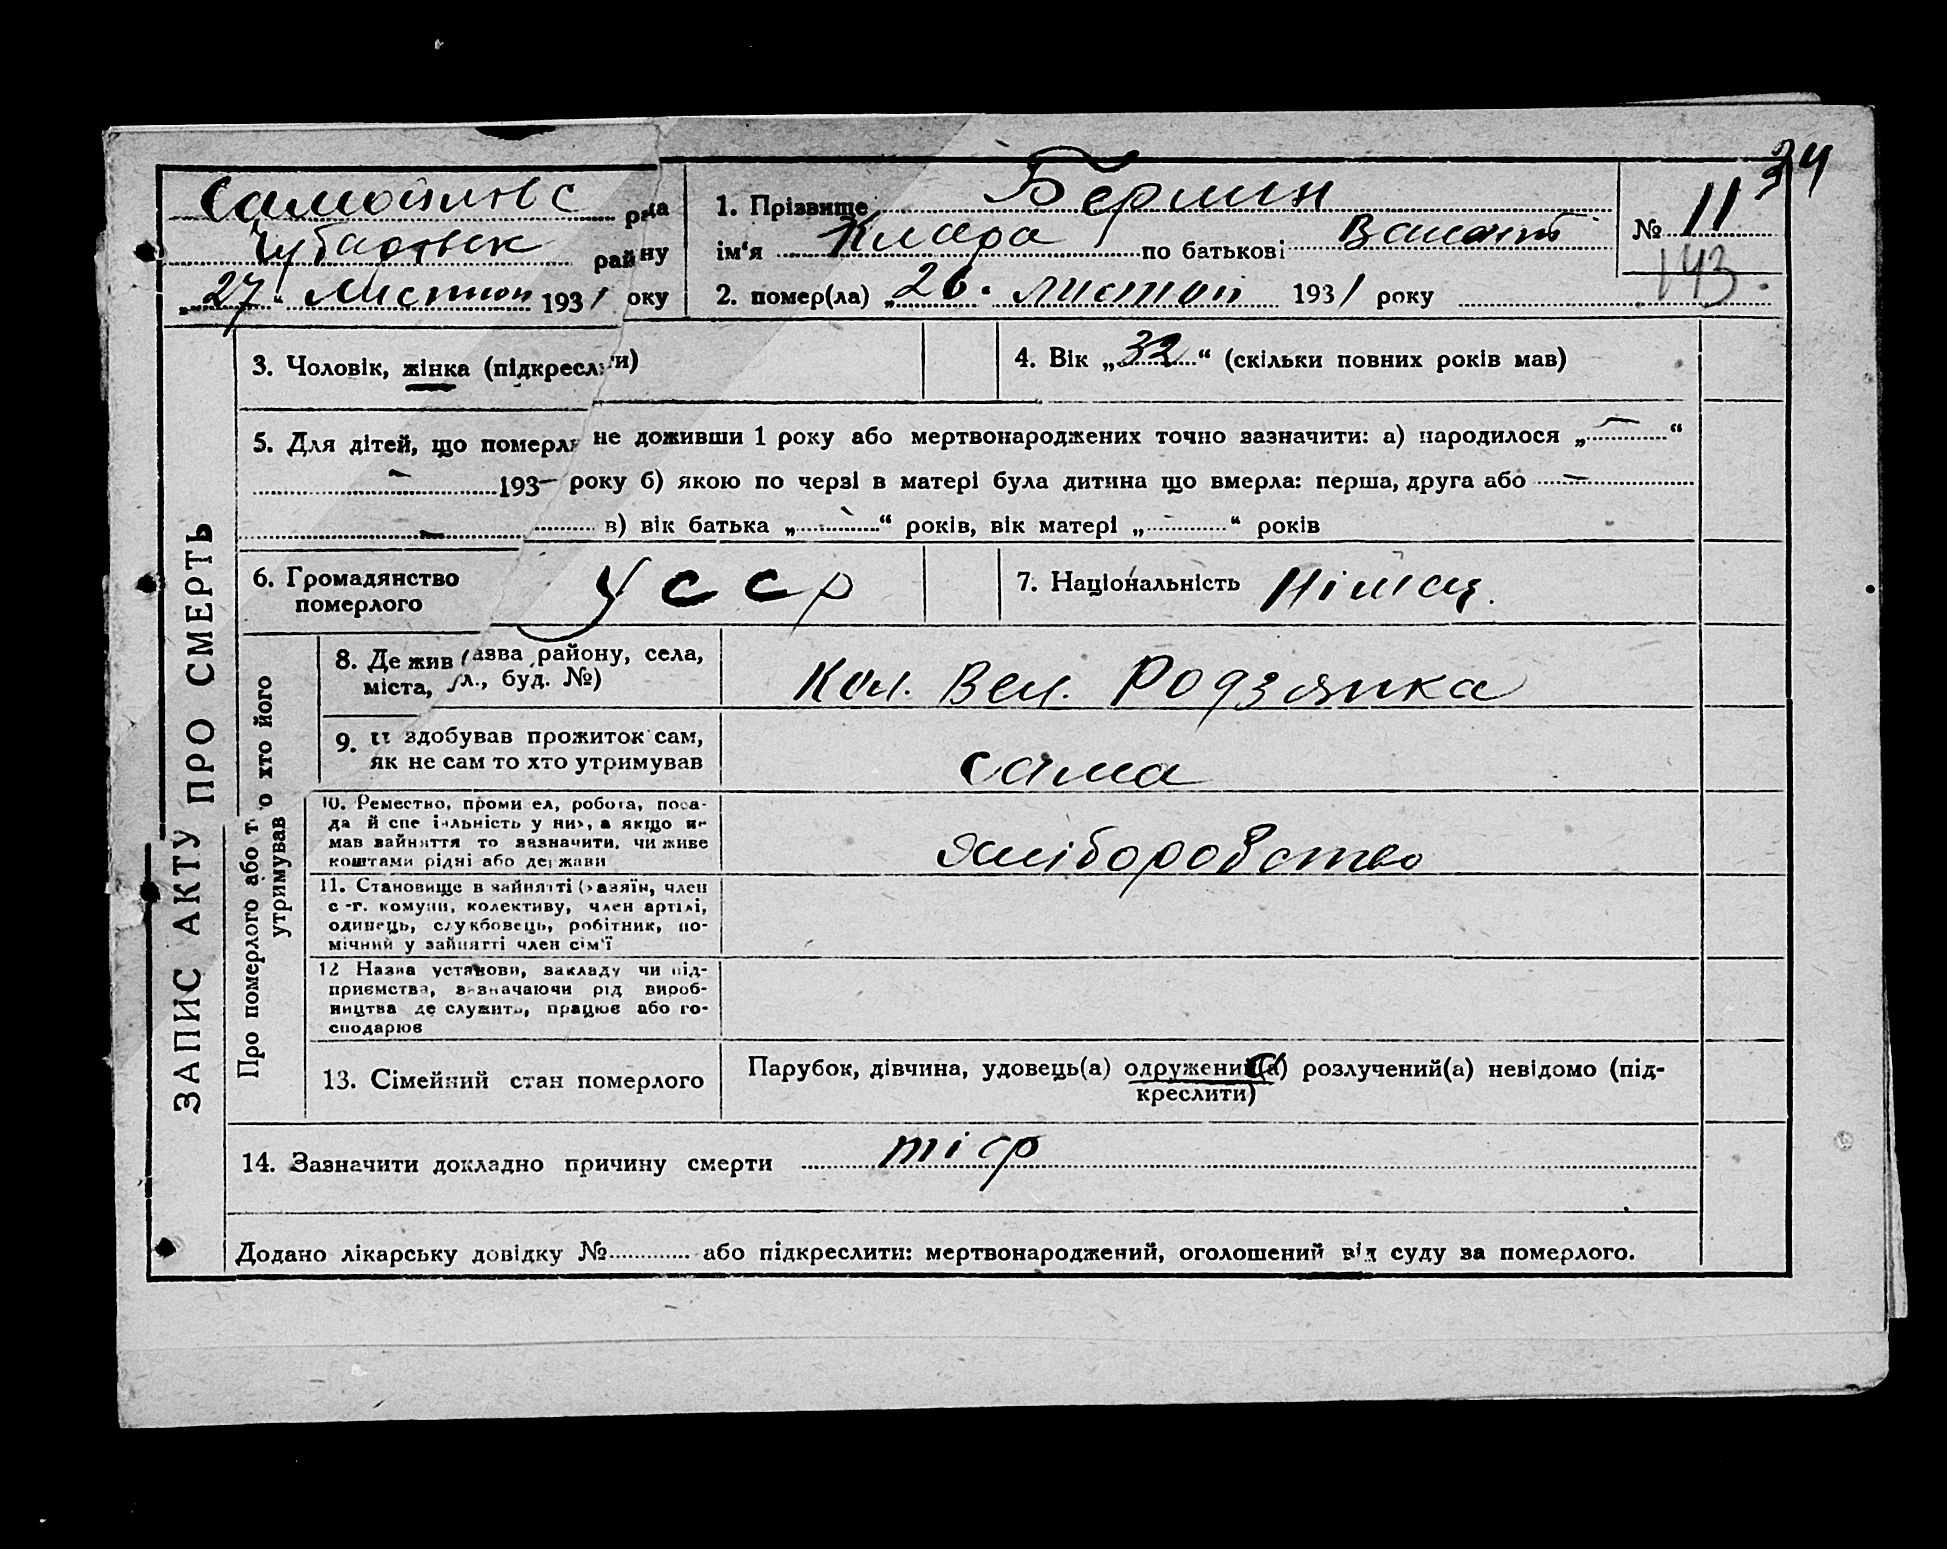 34
Самойлівс р да
Чубарівск району
„27“ Листоп 1931 року
1. Прізвище Берлин
ім'я Клара по батькові
№ 11
143
2. помер(ла) „26. листоп 1931 року
ЗАПИС АКТУ ПРО СМЕРТЬ
3. Чоловік, жінка (підкреслити)
4. Вік „32“ (скільки повних років мав)
5. Для дітей, що померли не доживши 1 року або мертвонароджених точно зазначити: а) народилося „—“
— 193— року б) якою по черзі в матері була дитина що вмерла: перша, друга або —
— в) вік батька „—“ років, вік матері „—“ років
6. Громадянство
померлого
УССР
7. Національність Німец.
Про померлого або т о хто його
утримував
8. Де жив азва району, села,
міста, л., буд. №)
Кол. Вел. Родзянка
9. здобував прожиток сам,
як не сам то хто утримував
сама
10. Ремество, проми ел, робота, поса-
да й спеціальність у них, а якщо не
мав зайняття то зазначити, чи живе
коштами рідні або держави
хліборобство
11. Становище в зайнятті (хазяїн, член
с-г. комуни, колективу, член артілі,
одинець, службовець, робітник, по-
мічний у зайнятті член сім'ї
12 Назва установи, закладу чи під-
приємства, визначаючи рід вироб-
ництва де служить, працює або го-
сподарює
13. Сімейний стан померлого
Парубок, дівчина, удовець(а) одружений(а) розлучений(а) невідомо (під-
креслити)
14. Зазначити докладно причину смерти тіф
Додано лікарську довідку № або підкреслити: мертвонароджений, оголошений від суду за померлого.